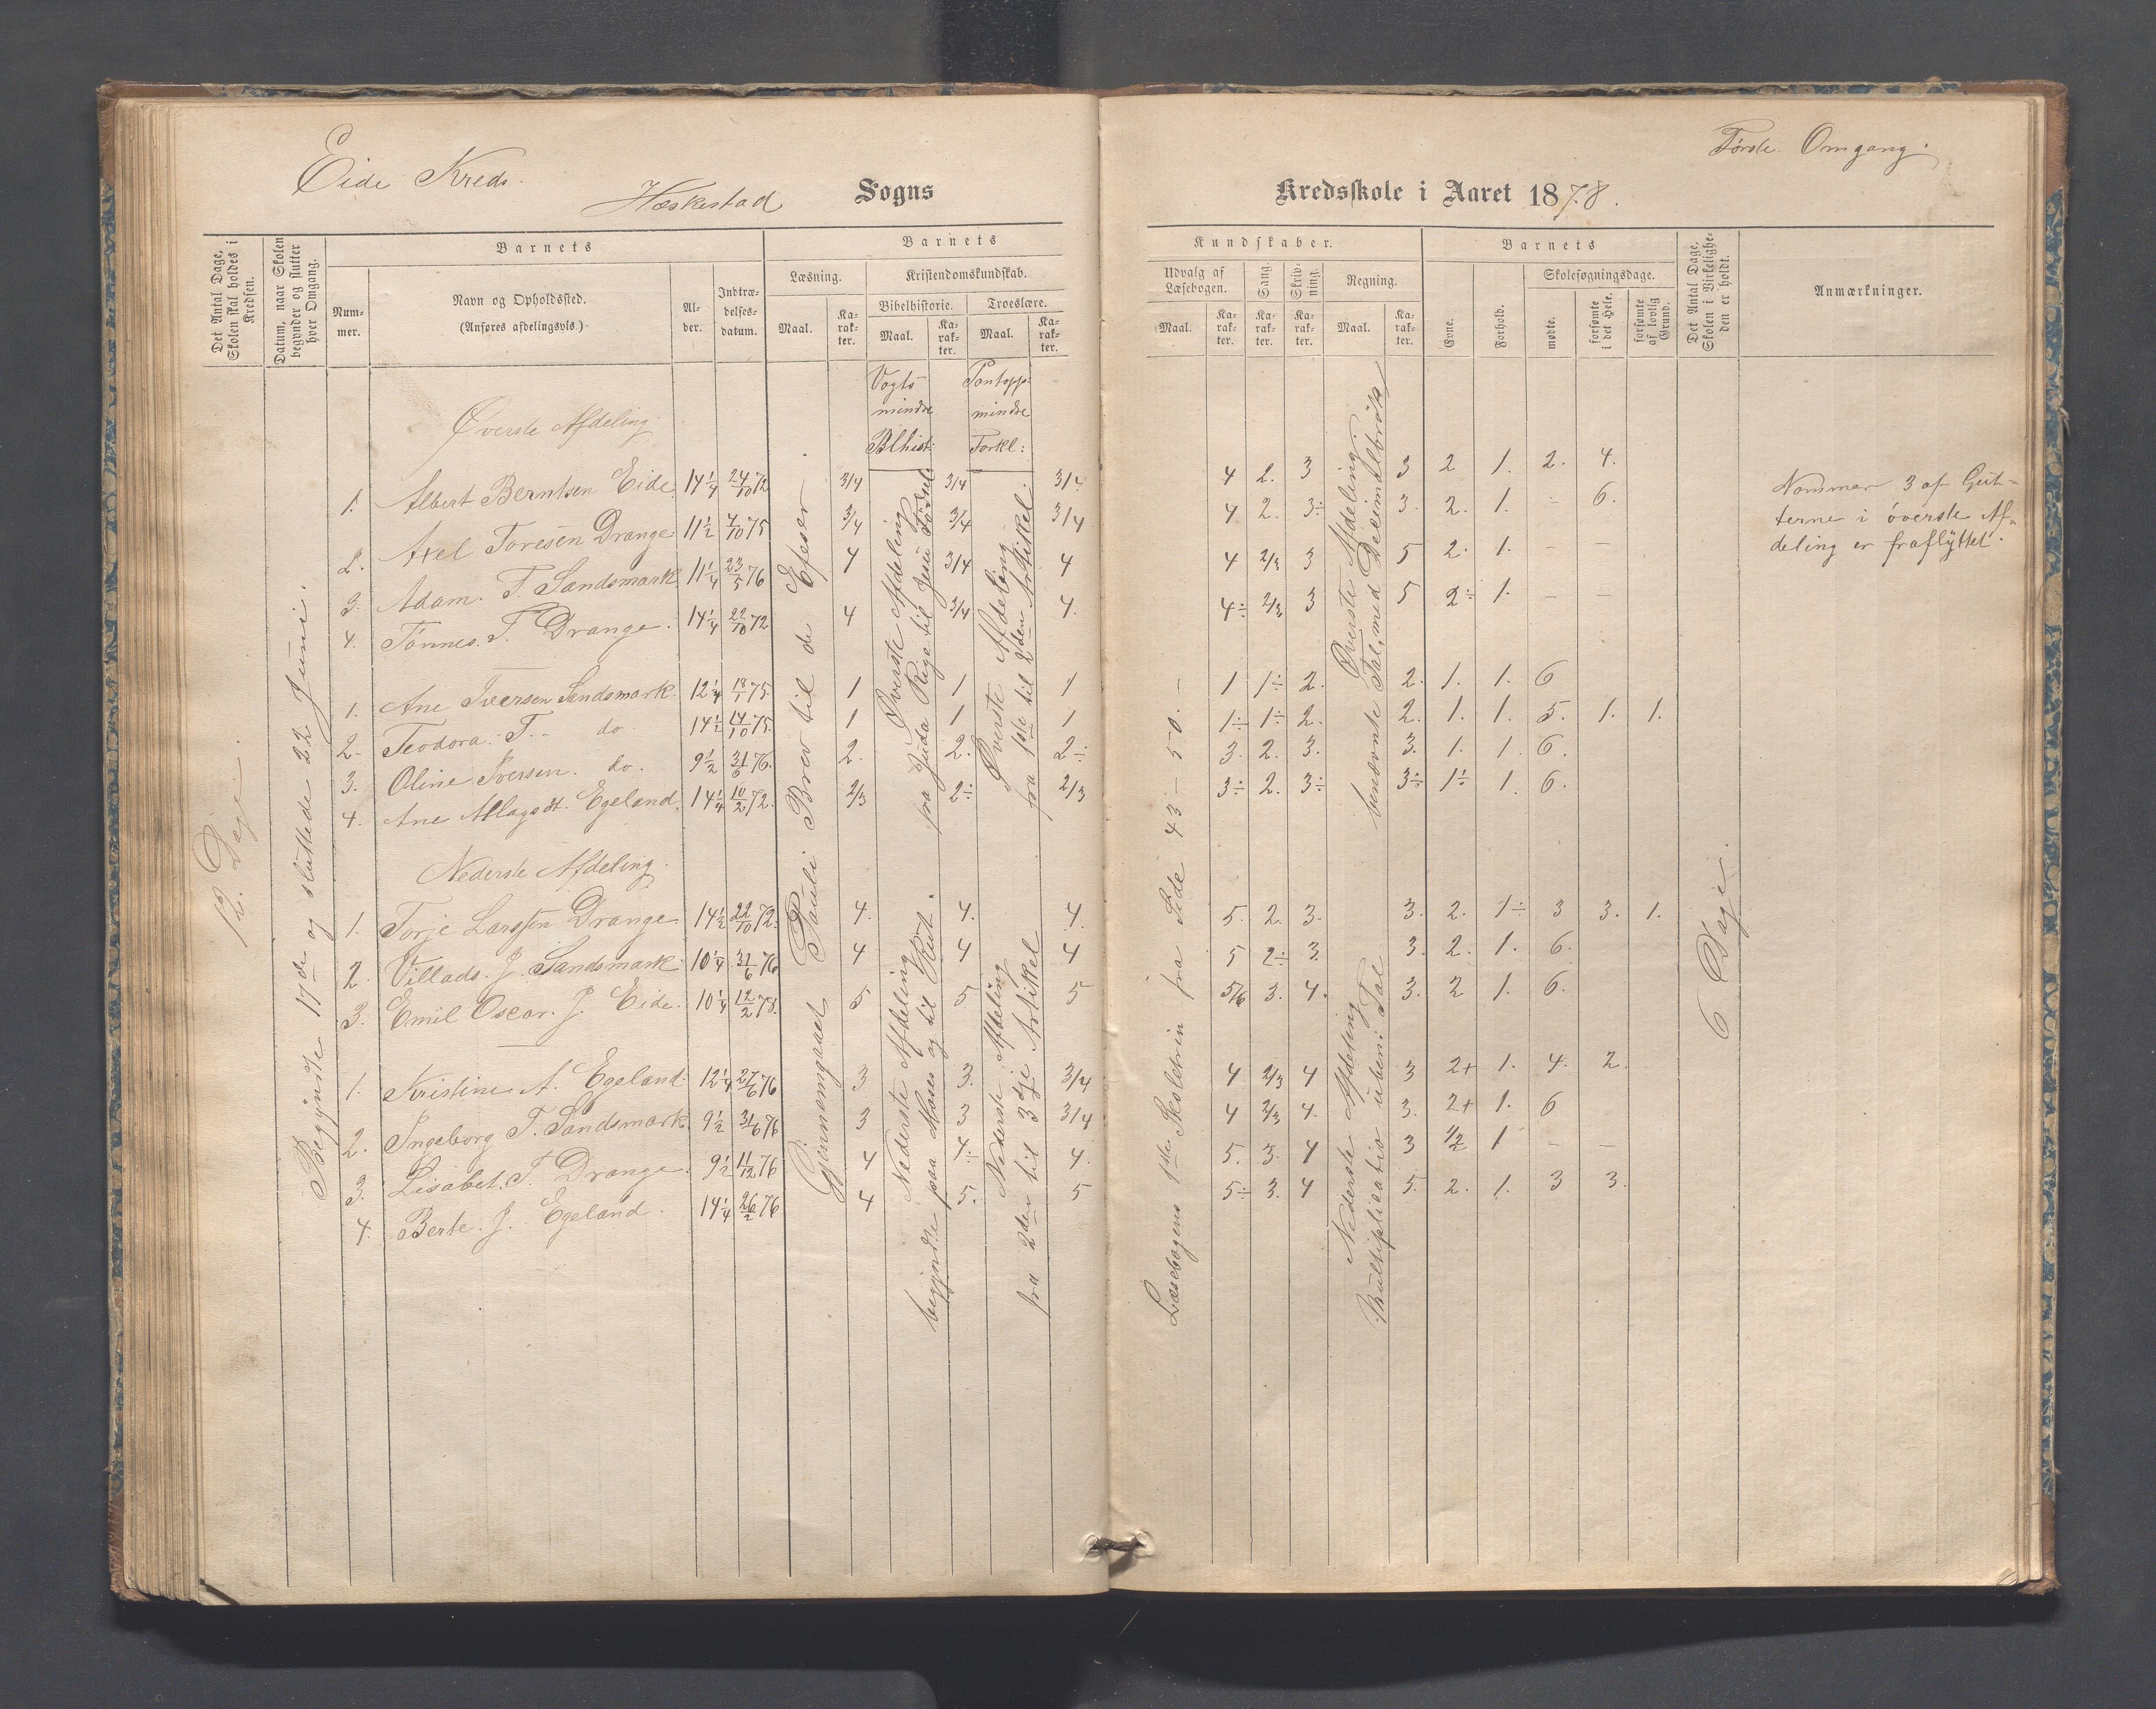 Eide Kreds.
Heskestad Sogns
Første Omgang.
Kredsskole i Aaret 1878.
Det Antal Dage, Skolen skal holdes i Kredsen.
Datum, naar Skolen begynder og slutter hver Omgang.
Barnets
Nummer.
Navn og Opholdssted.
(Anføres afdelingsvis.)
Alder.
Indtrædelsesdatum.
Barnets
Læsning.
Maal.
Karakter.
Kristendomskundskab.
Bibelhistorie.
Maal.
Karakter.
Troeslære.
Maal.
Karakter.
Kundskaber.
Udvalg af Læsebogen.
Maal.
Karakter.
Sang.
Karakter.
Skrivning.
Karakter.
Regning.
Maal.
Karakter.
Barnets
Evne.
Forhold.
Skolesøgningsdage.
mødte.
forsømte i det Hele.
forsømte af lovlig Grund.
Det Antal Dage, Skolen i Virkeligheden er holdt.
Anmærkninger.
12. Dage.
Begyndte 17de og sluttede 22 Juni.
Gjennemgaaet Pauli Brev til de Efeser
Vogts mindre Blhist:
Øverste Afdeling fra Juda Rige til Jesu Fødsel
Nederste Afdeling begyndte paa Moses og til Rut.
Pontopp: mindre Forkl:
Øverste Afdeling fra 1ste til 2den Artikel.
Nederste Afdeling fra 2den til 3dje Artikel
Læsebogens 1ste Skoletrin fra Side 43 – 50. –
Øverste Afdeling benævnte Tal, med Decimalbrøk
Nederste Afdeling Multiplicatio uben: Tal
6 Dage.
Øverste Afdeling
1. Albert Berntsen Eide 14¼ 24/10 72 3/4 3/4 3/4 4 2. 3 3 2 1. 2. 4.
2. Axel Toresen Drange 11½ 4/10 75 3/4 3/4 3/4 4 2. 3÷ 3. 2. 1. - 6.
3. Adam. T. Sandsmark 11¼ 23/5 76 4 3/4 4 4 2/3 3 5 2. 1. – –
4. Tønnes. T. Drange. 14¼ 22/10 72 4 3/4 4. 4÷ 2/3 3 5 2÷ 1. – –
1. Ane Iversen Sandsmark. 12¼ 18/1 75. 1 1 1 1 1÷ 2. 2. 1. 1. 6
2. Teodora. T. – do 14½ 14/10 75. 1 1 1 1÷ 1÷ 2. 2. 1. 1. 5. 1. 1.
3. Oline Iversen. do. 9½ 31/6 76. 2. 2. 2÷ 3. 2. 3. 3. 1. 1. 6.
4. Ane Aslagsdt. Egeland. 14¼ 10/2 72. 2/3 2÷ 2/3 3÷ 2. 3÷ 3÷ 1÷ 1. 6.
Nederste Afdeling
1. Torje Larssen Drange 14½ 22/10 72. 4. 4. 4. 5. 2. 3. 3. 2. 1÷ 3 3. 1.
2. Villads. J. Sandsmark 10¼ 31/6 76 4 4 4 5 2÷ 3. 3. 2. 1. 6.
3. Emil Oscar. J. Eide. 10¼ 12/2 78. 5 5 5 5/6 3. 4. 3. 2 1. 6.
1. Kristine A. Egeland. 12¼ 27/6 76 3 3. 3/4 4 2/3 4 3 2+ 1. 4. 2.
2. Ingeborg T. Sandsmark. 9½ 31/6 76 3 3 3/4 4 2/3 4. 3. 2+ 1. 6
3. Lisabet. T. Drange. 9½ 11/12 76 4 4÷ 4. 5. 3. 4 3 1/2 1 – –
4. Berte. J. Egeland. 14¼ 26/2 76 4 5. 5 5÷ 3. 4 5. 2. 1. 3 3.
Nommer 3 af Gut-
terne i øverste Af-
deling er fraflyttet.